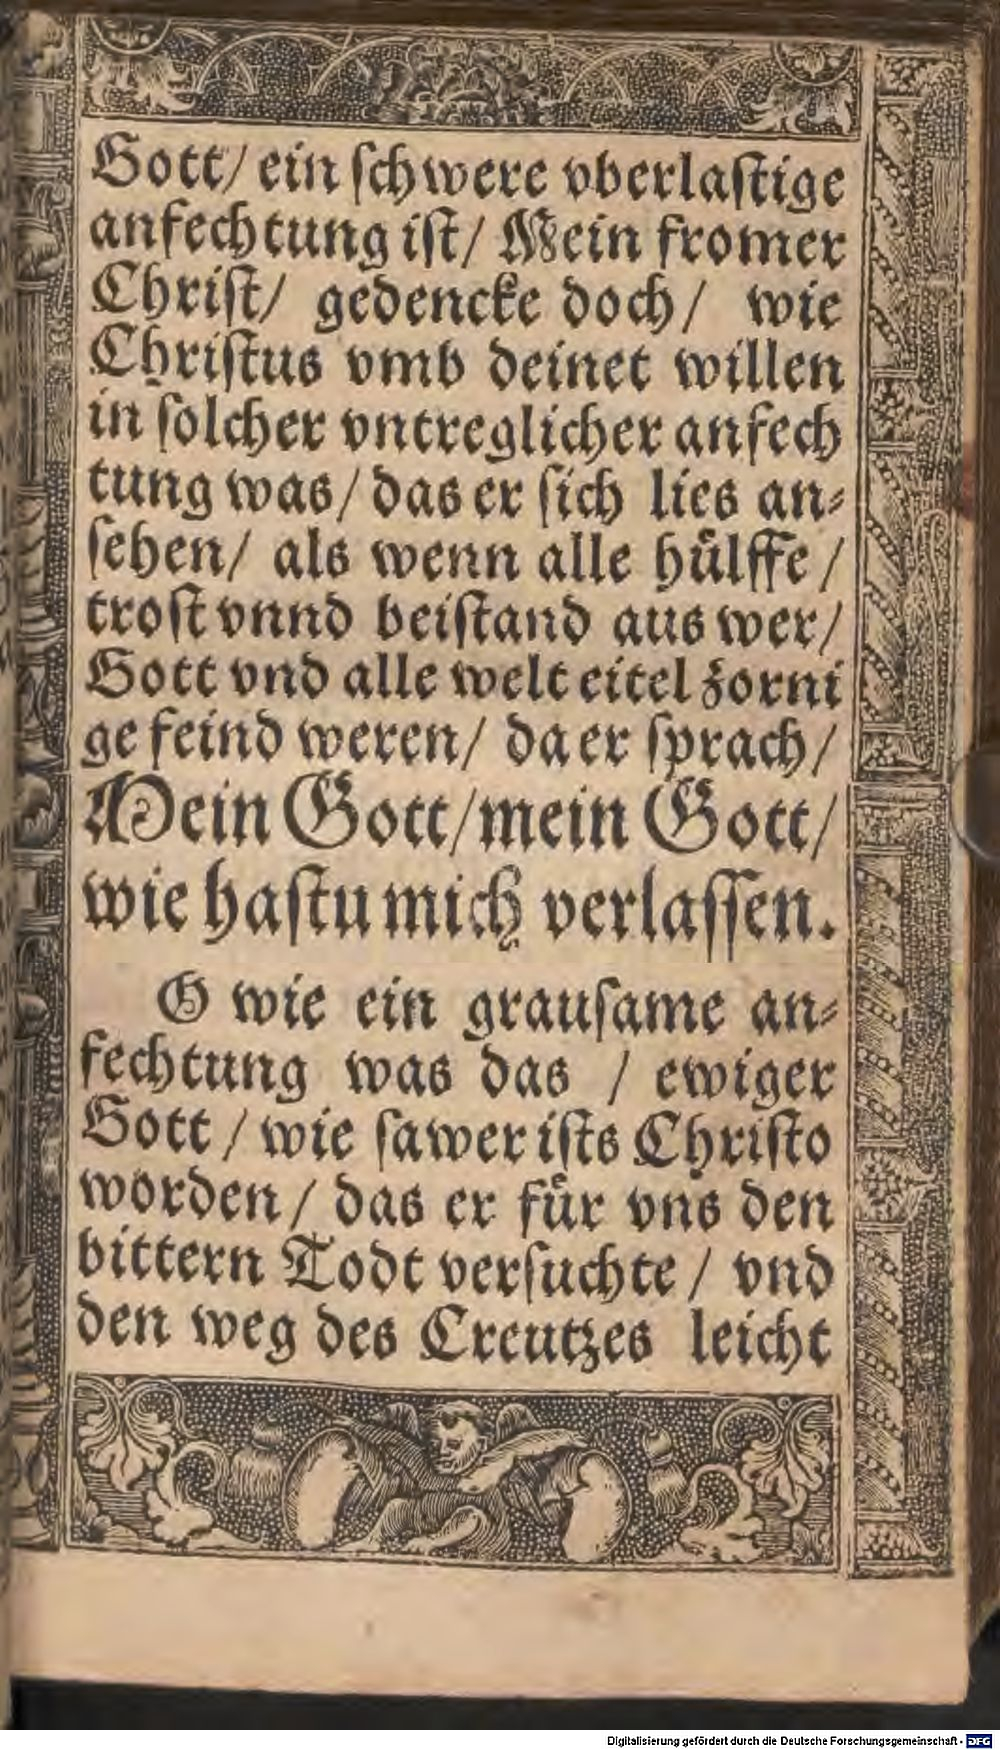 Gott/ ein ſchwere vberlaſtige
anfechtung iſt/ Mein fromer
Chriſt/ gedencke doch/ wie
Chriſtus vmb deinet willen
in ſolcher vntreglicher anfech
tung was/ das er ſich lies an⸗
ſehen/ als wenn alle huͤlffe/
troſt vnnd beiſtand aus wer/
Gott vnd alle welt eitel zorni
ge feind weren/ da er ſprach/
Mein Gott/ mein Gott/
wie haſtu mich verlaſſen.
O wie ein grauſame an⸗
fechtung was das / ewiger
Gott / wie ſawer iſts Chriſto
worden / das er fuͤr vns den
bittern Todt verſuchte / vnd
den weg des Creutzes leicht
Digitalisierung gefördert durch die Deutsche Forschungsgemeinschaft - DFG